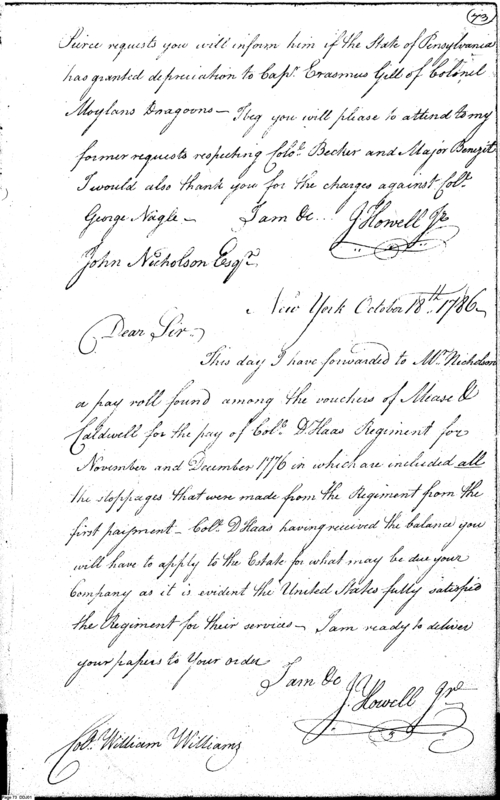 73
Pierce requests you will inform him if the State of Pensylvania
has granted depreciation to Capt. Erasmus Gill of Colonel
Moylans Dragoons — I beg you will please to attend to my
former requests respecting Colo. Becker and Major Benezet
I would also thank you for the charges against Colo.
George Nagle — I am &c... J. Howell Jr.
John Nicholson Esqr.
New York October 18th. 1786
Dear Sir
This day I have forwarded to Mr. Nicholson
a pay roll found among the vouchers of Mease &
Caldwell for the pay of Colo. DHaas Regiment for
November and December 1776 in which are included all
the stoppages that were made from the Regiment from the
first paiment — Colo. DHaas having received the balance you
will have to apply to the Estate for what may be due your
Company as it is evident the United States fully satisfied
the Regiment for their services — I am ready to deliver
your papers to Your order
I am &c J. Howell Jr.
Colo. William Williams
Page 73